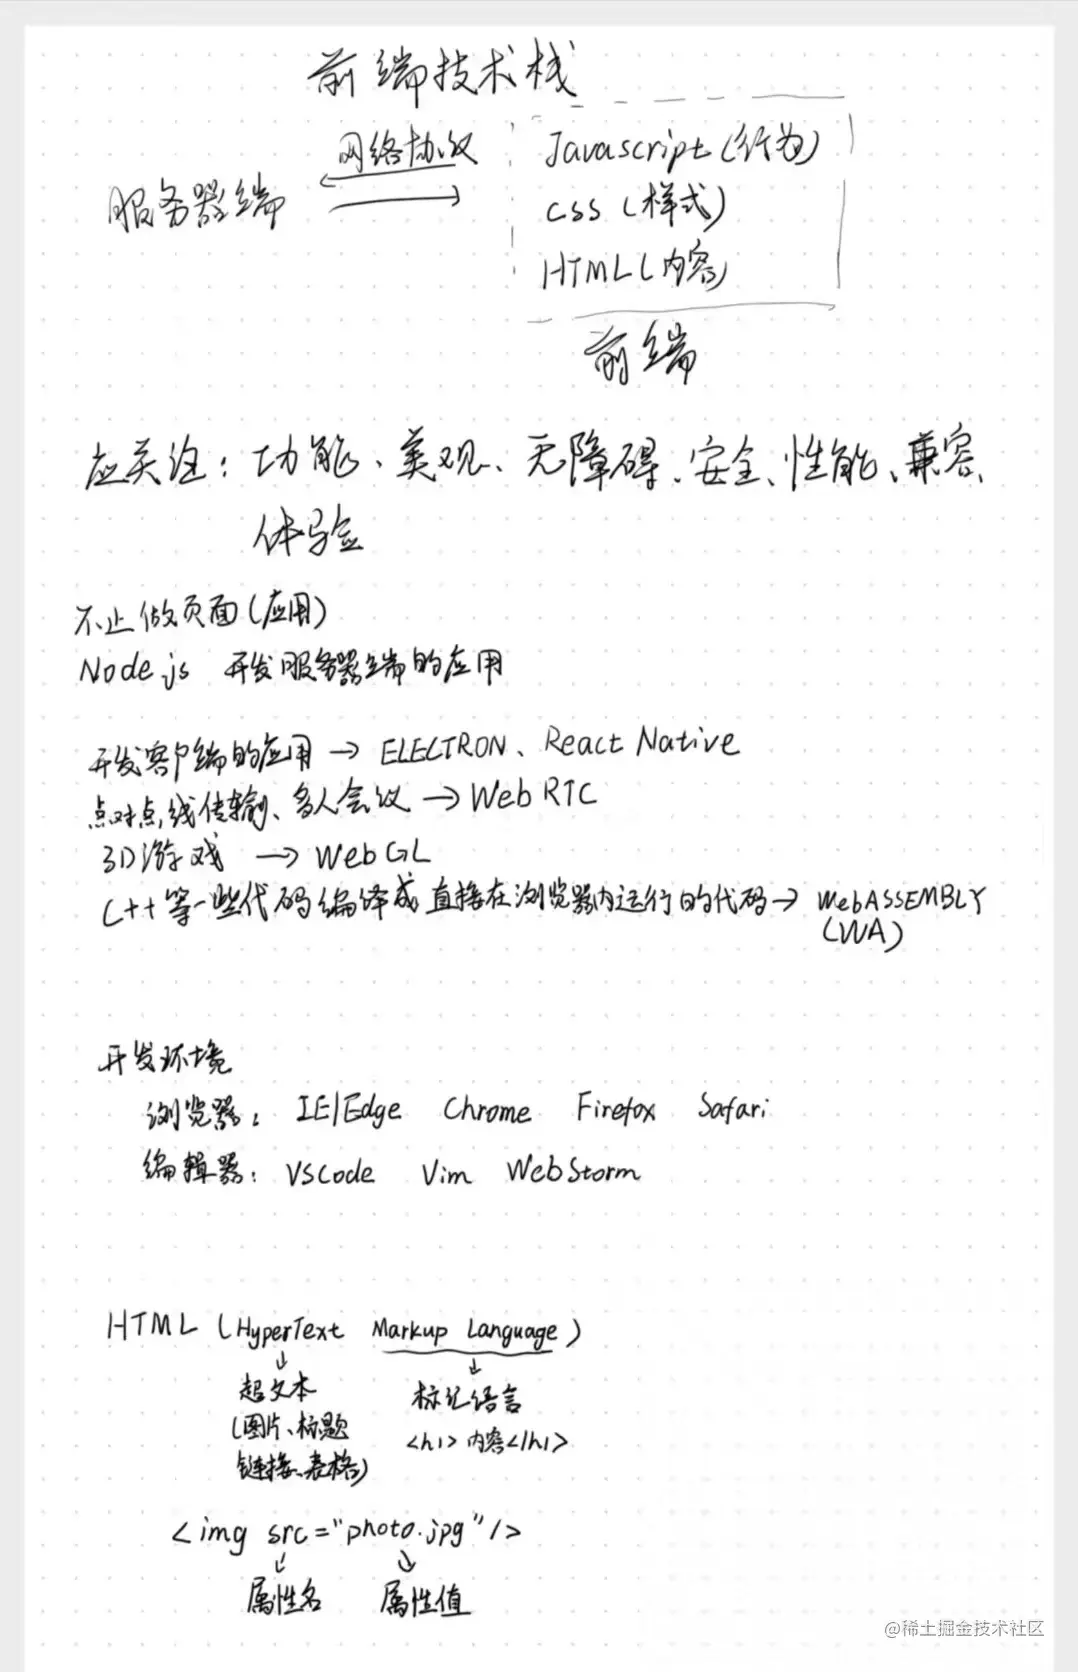 前端技术栈
网络协议
服务器端
Javascript(行为)
CSS(样式)
HTML(内容)
前端
应关注：功能、美观、无障碍、安全、性能、兼容、
体验
不止做页面(应用)
Node.js 开发服务器端的应用
开发客户端的应用→ELECTRON、React Native
点对点线传输、多人会议→Web RTC
3D游戏→WebGL
C++等一些代码编译成直接在浏览器内运行的代码→WebASSEMBLY
(WA)
开发环境
浏览器：IE/Edge Chrome Firefox Safari
编辑器：VSCode Vim WebStorm
HTML (HyperText Markup Language)
超文本 标记语言
(图片、标题 <h1>内容</h1>
链接、表格)
<img src="photo.jpg"/>
属性名 属性值
@稀土掘金技术社区